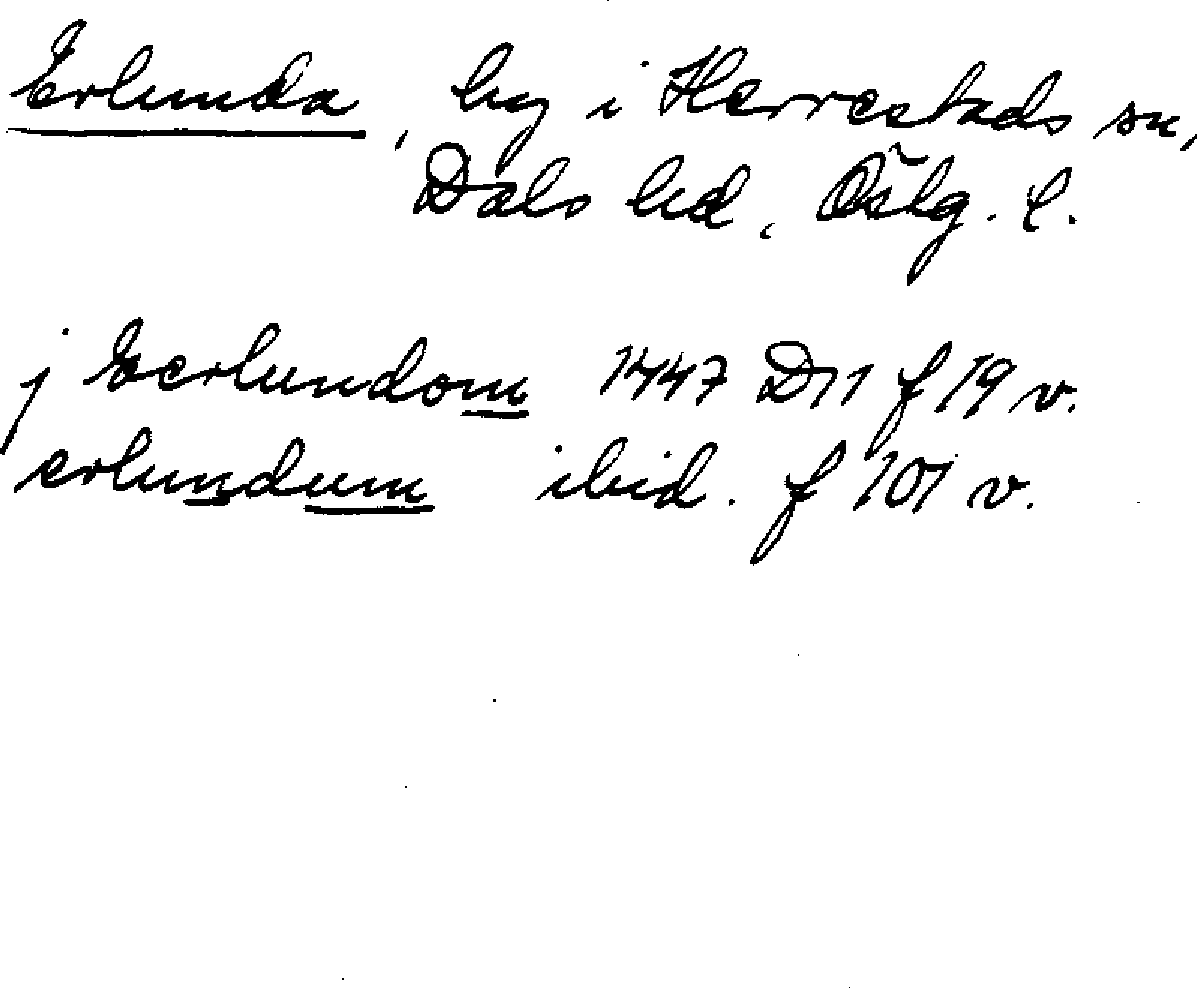 Erlunda, by i Herrestads sn,
Dals hd, Östg. l.
j Eerlundom 1447 D11 f 19 v.
erlundum ibid. f 101 v.